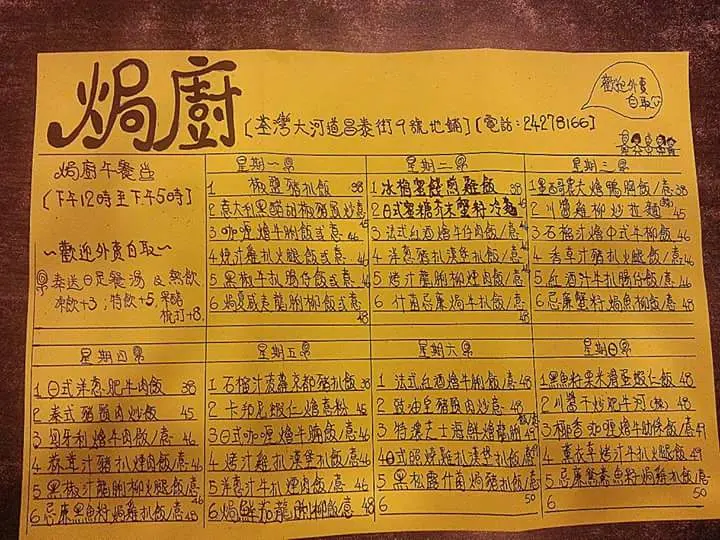 焗廚
[荃灣大河道昌泰街9號地鋪] [電話:24278166]
歡迎外賣
自取
焗廚午餐
[下午12時至下午5時]
~歡迎外賣自取~
奉送日是餐湯 & 熱飲
凍飲+3;特飲+5,
梳打+8
星期一
1 椒鹽豬扒飯 38
3 咖喱燴牛脷飯或意 46
4 燒汁雞扒火腿飯或意 46
5 黑椒牛扒腸仔飯或意 46
星期二
3 法式紅酒燴牛仔肉飯/意 46
4 洋蔥豬扒漢堡扒飯/意 46
5 燒汁龍脷柳煙肉飯/意 46
6 什菌忌廉焗牛扒飯/意 48
星期三
2 川醬雞柳炒拉麵 45
3 石榴汁燴中式牛柳飯 46
4 香草汁豬扒火腿飯/意 46
5 紅酒汁牛扒腸仔飯/意 46
6 忌廉蟹籽焗魚柳飯/意 48
星期四
1 日式洋蔥肥牛肉飯 38
2 泰式豬頸肉炒飯 45
3 匈牙利燴牛肉飯/意 46
4 汁豬扒煙肉飯/意 46
5 黑椒汁龍脷柳火腿飯/意 46
6 忌廉黑魚籽焗雞扒飯/意 48
星期五
1 石榴汁菠蘿豬扒飯 38
2 卡邦尼蝦仁燴意粉 45
3 日式咖喱燴牛腩飯/意 46
4 燒汁雞扒漢堡扒飯/意 46
5 洋蔥汁牛扒煙肉飯/意 46
6 焗鮮茄龍脷柳飯/意 48
星期六
1 法式紅酒燴牛脷飯/意 48
2 豉油皇豬頸肉炒意 48
3 特濃芝士海鮮燴龍脷飯/意 49
4 日式照燒雞扒漢堡扒飯/意 49
5 黑松露什菌焗豬扒飯/意 50
6
星期日
1 黑魚籽粟米滑蛋蝦仁飯 48
2 川醬干炒肥牛河 48
3 椰香咖喱燴牛肋條飯/意 49
4 薰衣草燒汁牛扒火腿飯/意 49
5 忌廉鴛鴦魚籽焗雞扒飯/意 50
6